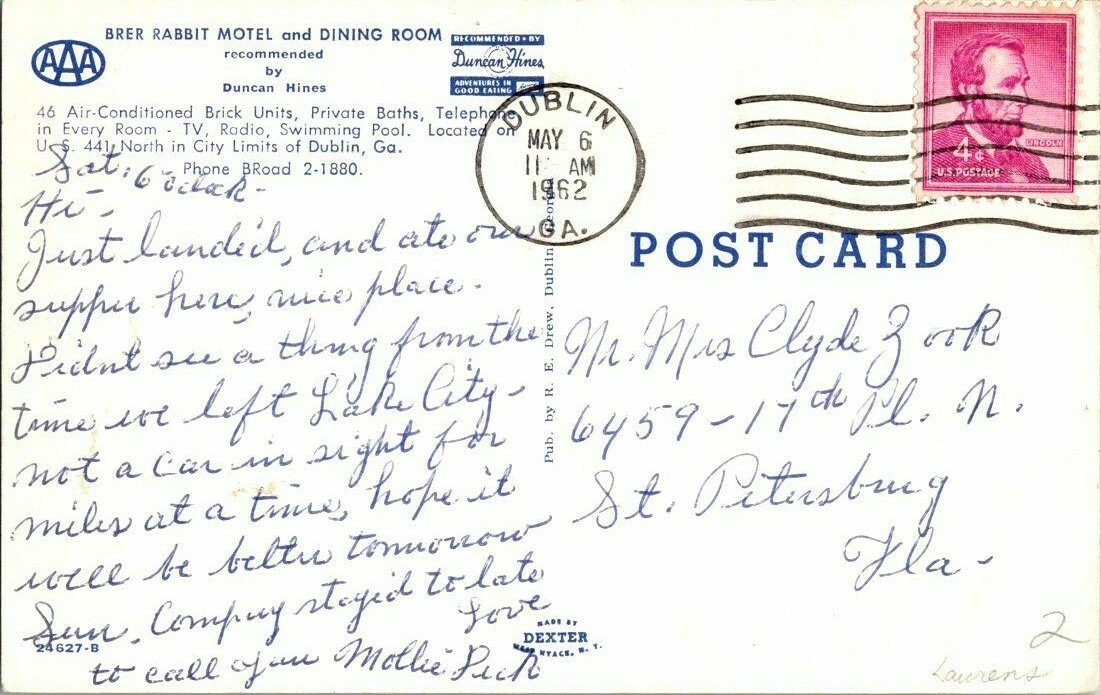 BRER RABBIT MOTEL and DINING ROOM
recommended
by
Duncan Hines
AAA
RECOMMENDED • BY
Duncan Hines
ADVENTURES IN
GOOD EATING
46 Air-Conditioned Brick Units, Private Baths, Telephone
in Every Room - TV, Radio, Swimming Pool. Located on
U. S. 441 North in City Limits of Dublin, Ga.
Phone BRoad 2-1880.
Sat. 6 o'clock-
Hi-
Just landed, and ate our
supper here, nice place.
Didnt see a thing from the
time we left Lake City-
not a car in sight for
miles at a time, hope it
will be better tomorrow
Sun. Compny stayed to late
to call you
Love
Mollie Peck
24627-B
Pub. by R. E. Drew, Dublin, Georgia
MADE BY
DEXTER
WEST NYACK, N. Y.
DUBLIN
MAY 6
11 AM
1962
GA.
LINCOLN
4¢
U.S. POSTAGE
POST CARD
Mr. Mrs Clyde Zook
6459-17th Pl. N.
St. Petersburg
Fla-
2
Laurens